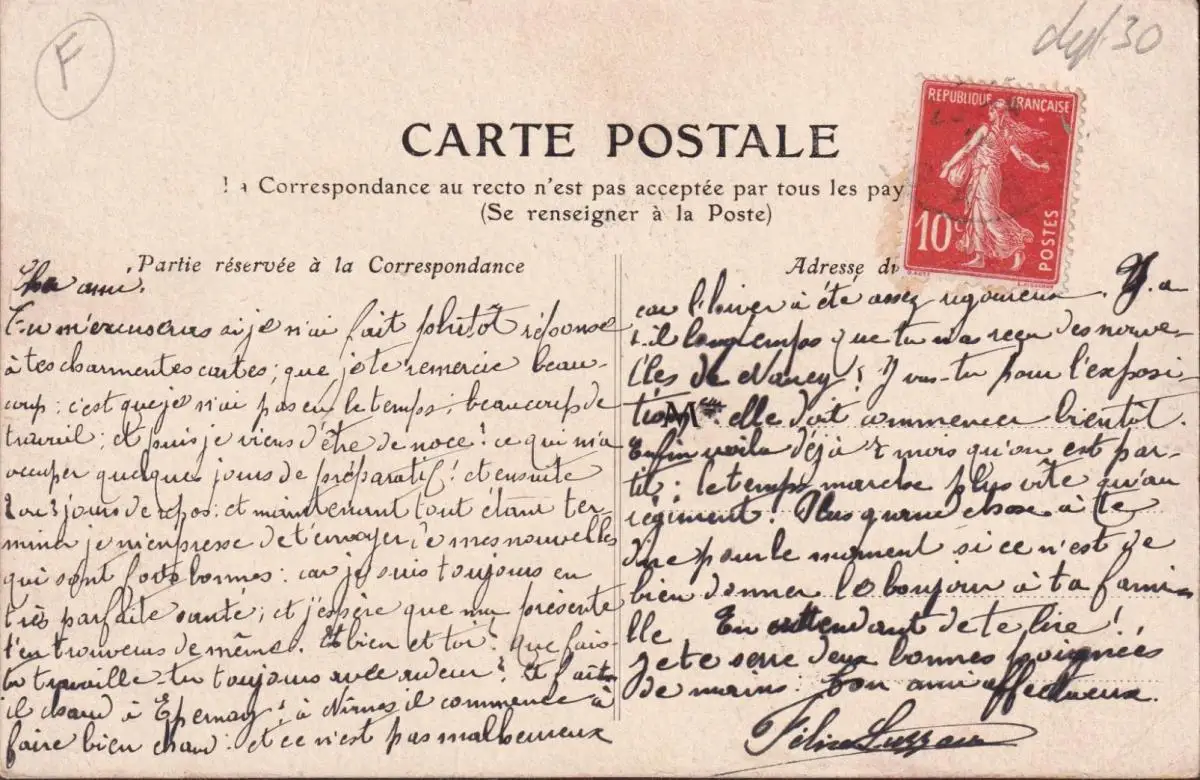 F
dept 30
REPUBLIQUE FRANÇAISE
10c
POSTES
CARTE POSTALE
La Correspondance au recto n'est pas acceptée par tous les pay
(Se renseigner à la Poste)
Partie réservée à la Correspondance
Adresse du
Cher ami.
Tu m'excuseras si je n'ai fait plutôt réponse
à tes charmentes cartes; que je te remercie beau-
coup; c'est que je n'ai pas eu le temps; beaucoup de
travail; et puis je viens d'être de noce! ce qui m'a
occuper quelques jours de préparatif! et ensuite
2 ou 3 jours de repos: et maintenant tout étant ter-
miner je m'empresse de t'envoyer de mes nouvelles
qui sont forts bonnes: car je suis toujours en
très parfaite santé; et j'espère que ma présente
t'en trouveras de même. Et bien et toi? que fais-
tu travaille-tu toujours avec ardeur? Et fait-
il chaud à Epernay? à Nimes il commence à
faire bien chaud: et ce n'est pas malheureux
car l'hiver à été assez rigoureux. Y a
t-il longtemps que tu n'as reçu des nouve-
lles de Nancy? Y vas-tu pour l'exposi-
tion elle doit commencer bientôt.
Enfin voila déjà 7 mois qu'on est par-
tit; le temps marche plus vite qu'au
régiment! Plus grand chose à te
dire pour le moment si ce n'est de
bien donner le bonjour à ta fami-
lle. En attendant de te lire!
Je te serre deux bonnes poignées
de mains. Ton ami affectueux.
Félix